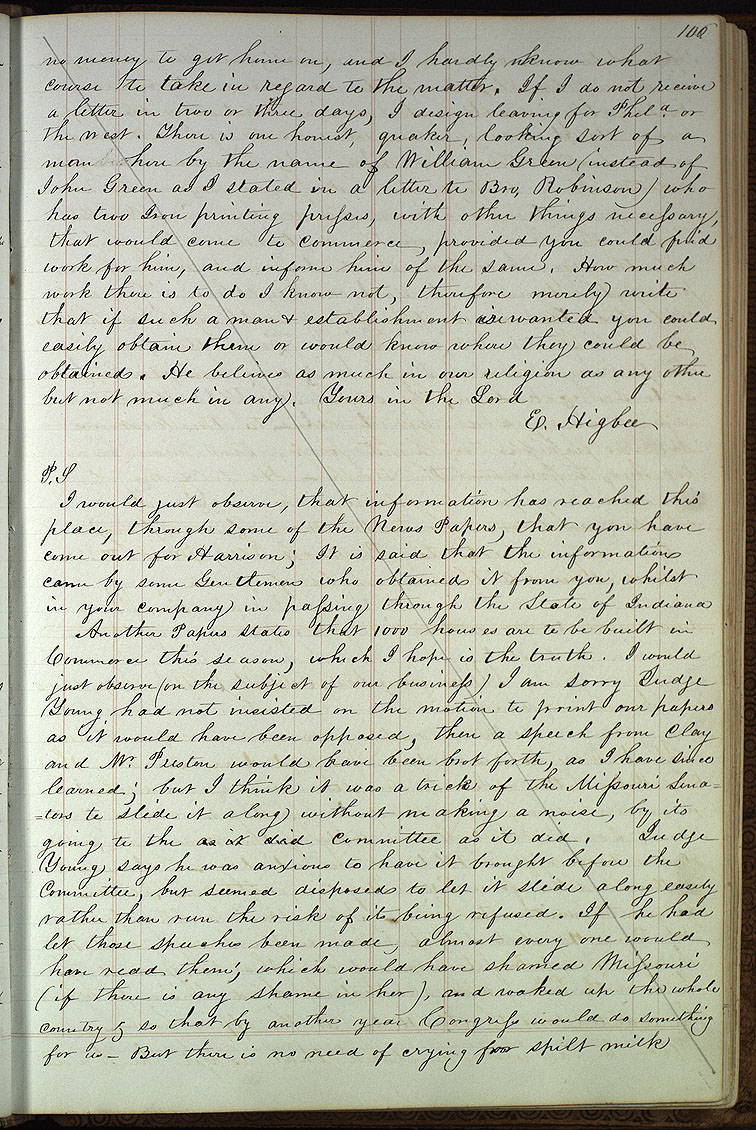 100
no money to get home on, and I hardly know what
course to take in regard to the matter. If I do not receive
a letter in two or three days, I design leaving for Phila. or
the west. There is one honest, quaker, looking sort of a
man here by the name of William Green (instead of
John Green as I stated in a letter to Bro, Robinson) who
has two Iron printing presses, with other things necessary,
that would come to commerce, provided you could find
work for him, and inform him of the same. How much
work there is to do I know not, therefore merely write
that if such a man & establishment are wanted you could
easily obtain them or would know where they could be
obtained. He believes as much in our religion as any other
but not much in any. Yours in the Lord
E. Higbee
P.S
I would just observe, that information has reached this
place, through some of the News Papers, that you have
come out for Harrison; It is said that the information
came by some Gentlemen who obtained it from you, whilst
in your company in passing through the State of Indiana
Another Papers states that 1000 houses are to be built in
Commerce this season, which I hope is the truth. I would
just observe (on the subject of our business) I am sorry Judge
Young had not insisted on the motion to print our papers
as it would have been opposed, then a speech from Clay
and Mr. Preston would have been brot forth, as I have since
learned; but I think it was a trick of the Missouri Sena=
=tors to slide it along without making a noise, by its
going to the as it did committee as it did. Judge
Young says he was anxious to have it brought before the
Committee, but seemed disposed to let it slide along easily
rather than run the risk of its being refused. If he had
let those speeches been made, almost every one would
have read them; which would have shamed Missouri
(if there is any shame in her), and waked up the whole
country; so that by another year Congress would do something
for us — But there is no need of crying for spilt milk